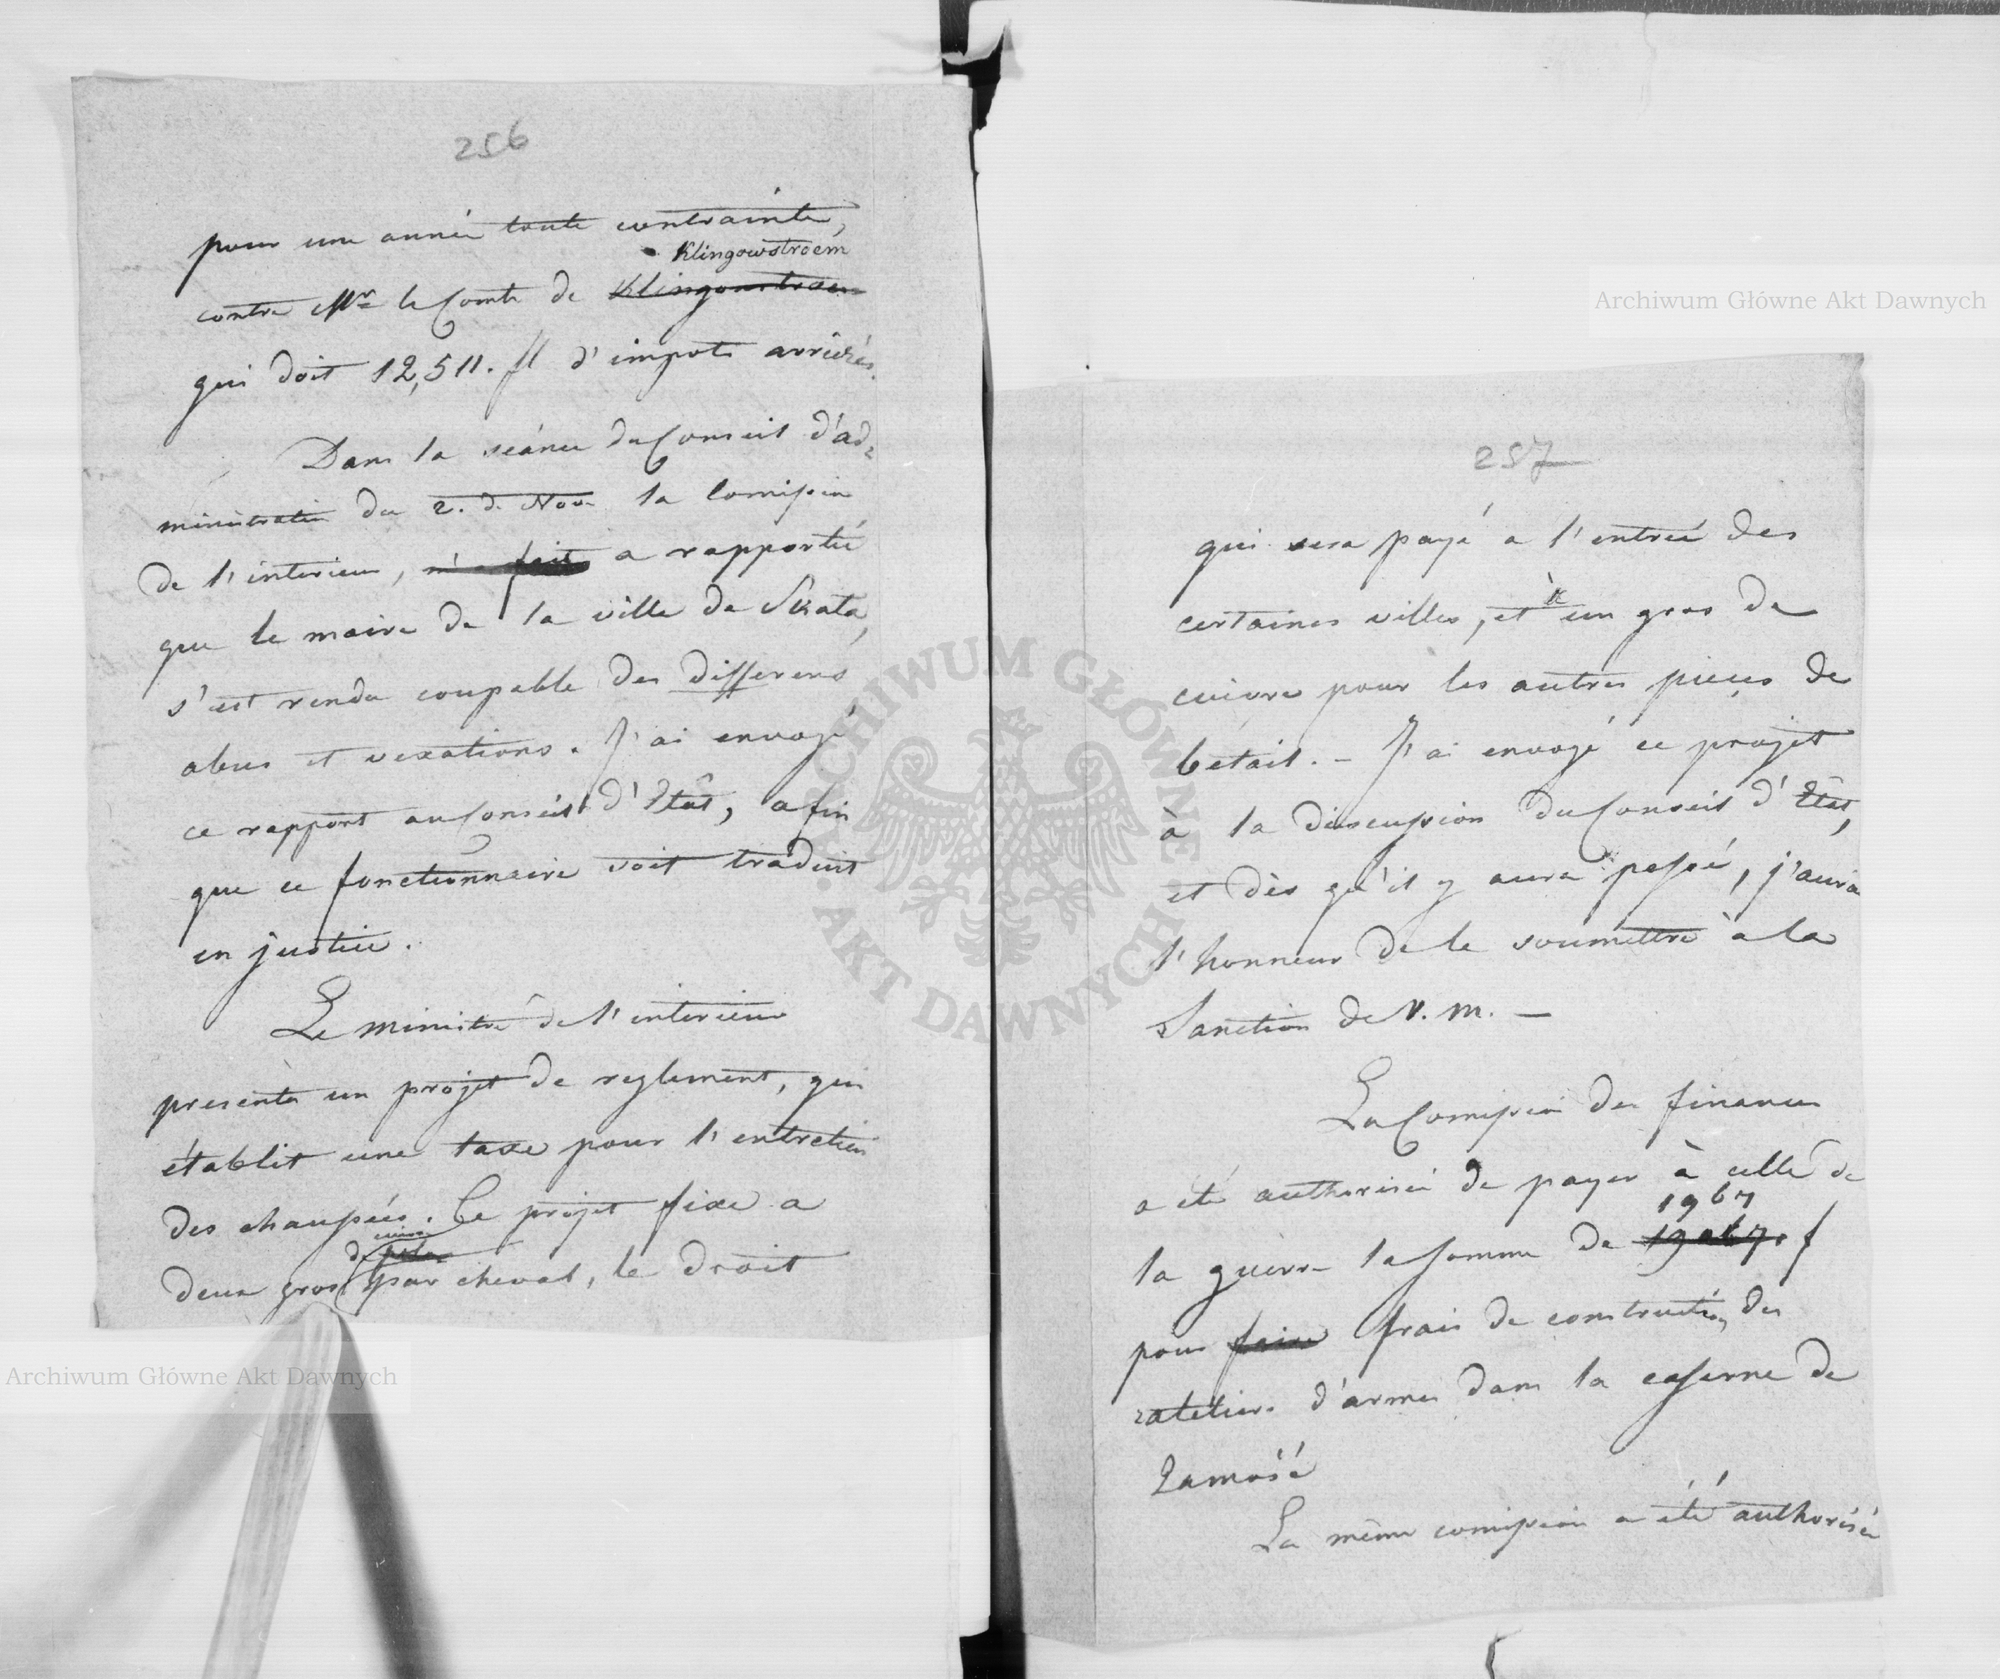 256
pour une année toute contrainte,
Klingowstroem
contre Mr le Comte de Klingowstroem
qui doit 12,511. fl d'impots arriérés.
Dans la séance du Conseil d'ad-
ministration du 2. d. Nov. la Comission
de l'interieur, fait a rapportée
que le maire de la ville de Skała,
s'est rendu coupable des differens
abus et vexations. J'ai envoyé
ce rapport au Conseil d'Etat, afin
que ce fonctionnaire soit traduit
en justice.
Le ministre de l'interieur
presenta un projet de reglement, qui
établit une taxe pour l'entretien
des chaussées. Ce projet fixe a
de cuivre
deux gros par cheval, le droit
257
qui sera payé a l'entrée des
certaines villes, et à un gros de
cuivre pour les autres pieces de
betail. - J'ai envoyé ce projet
à la discussion du Conseil d'Etat,
et dès qu'il y aura passé, j'aurai
l'honneur de le soumettre à la
Sanction de V. M. —
La Comission des finances
a été authorisée de payer à celle de
1967
la guerre la somme de f
pour faire frais de construction des
ateliers d'armes dans la caserne de
Zamość
La même comission a été authorisée
Archiwum Główne Akt Dawnych
Archiwum Główne Akt Dawnych
ARCHIWUM GŁÓWNE AKT DAWNYCH